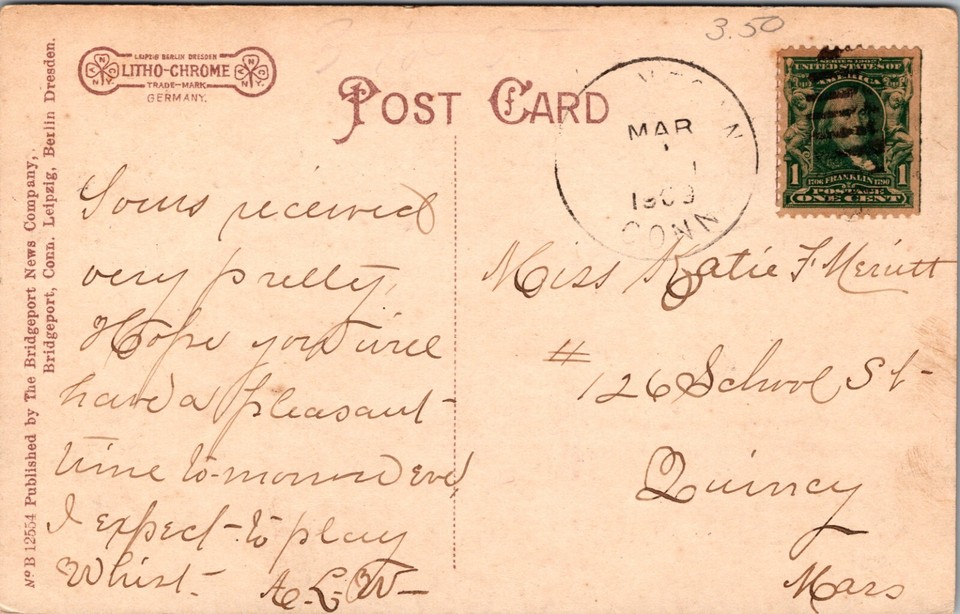 3.50
LEIPZIG BERLIN DRESDEN
LITHO-CHROME
TRADE-MARK
GERMANY.
POST CARD
MAR
1
1909
CONN
SERIES 1902
UNITED STATES OF
AMERICA
1 1706 FRANKLIN 1790 1
POSTAGE
ONE CENT
Yours received
very pretty,
Hope you will
have a pleasant
time to-morrow eve,
I expect to play
Whist. A. L. W—
Miss Katie F Merritt
# 126 School St-
Quincy
Mass
No B 12554 Published by The Bridgeport News Company,
Bridgeport, Conn. Leipzig, Berlin Dresden.